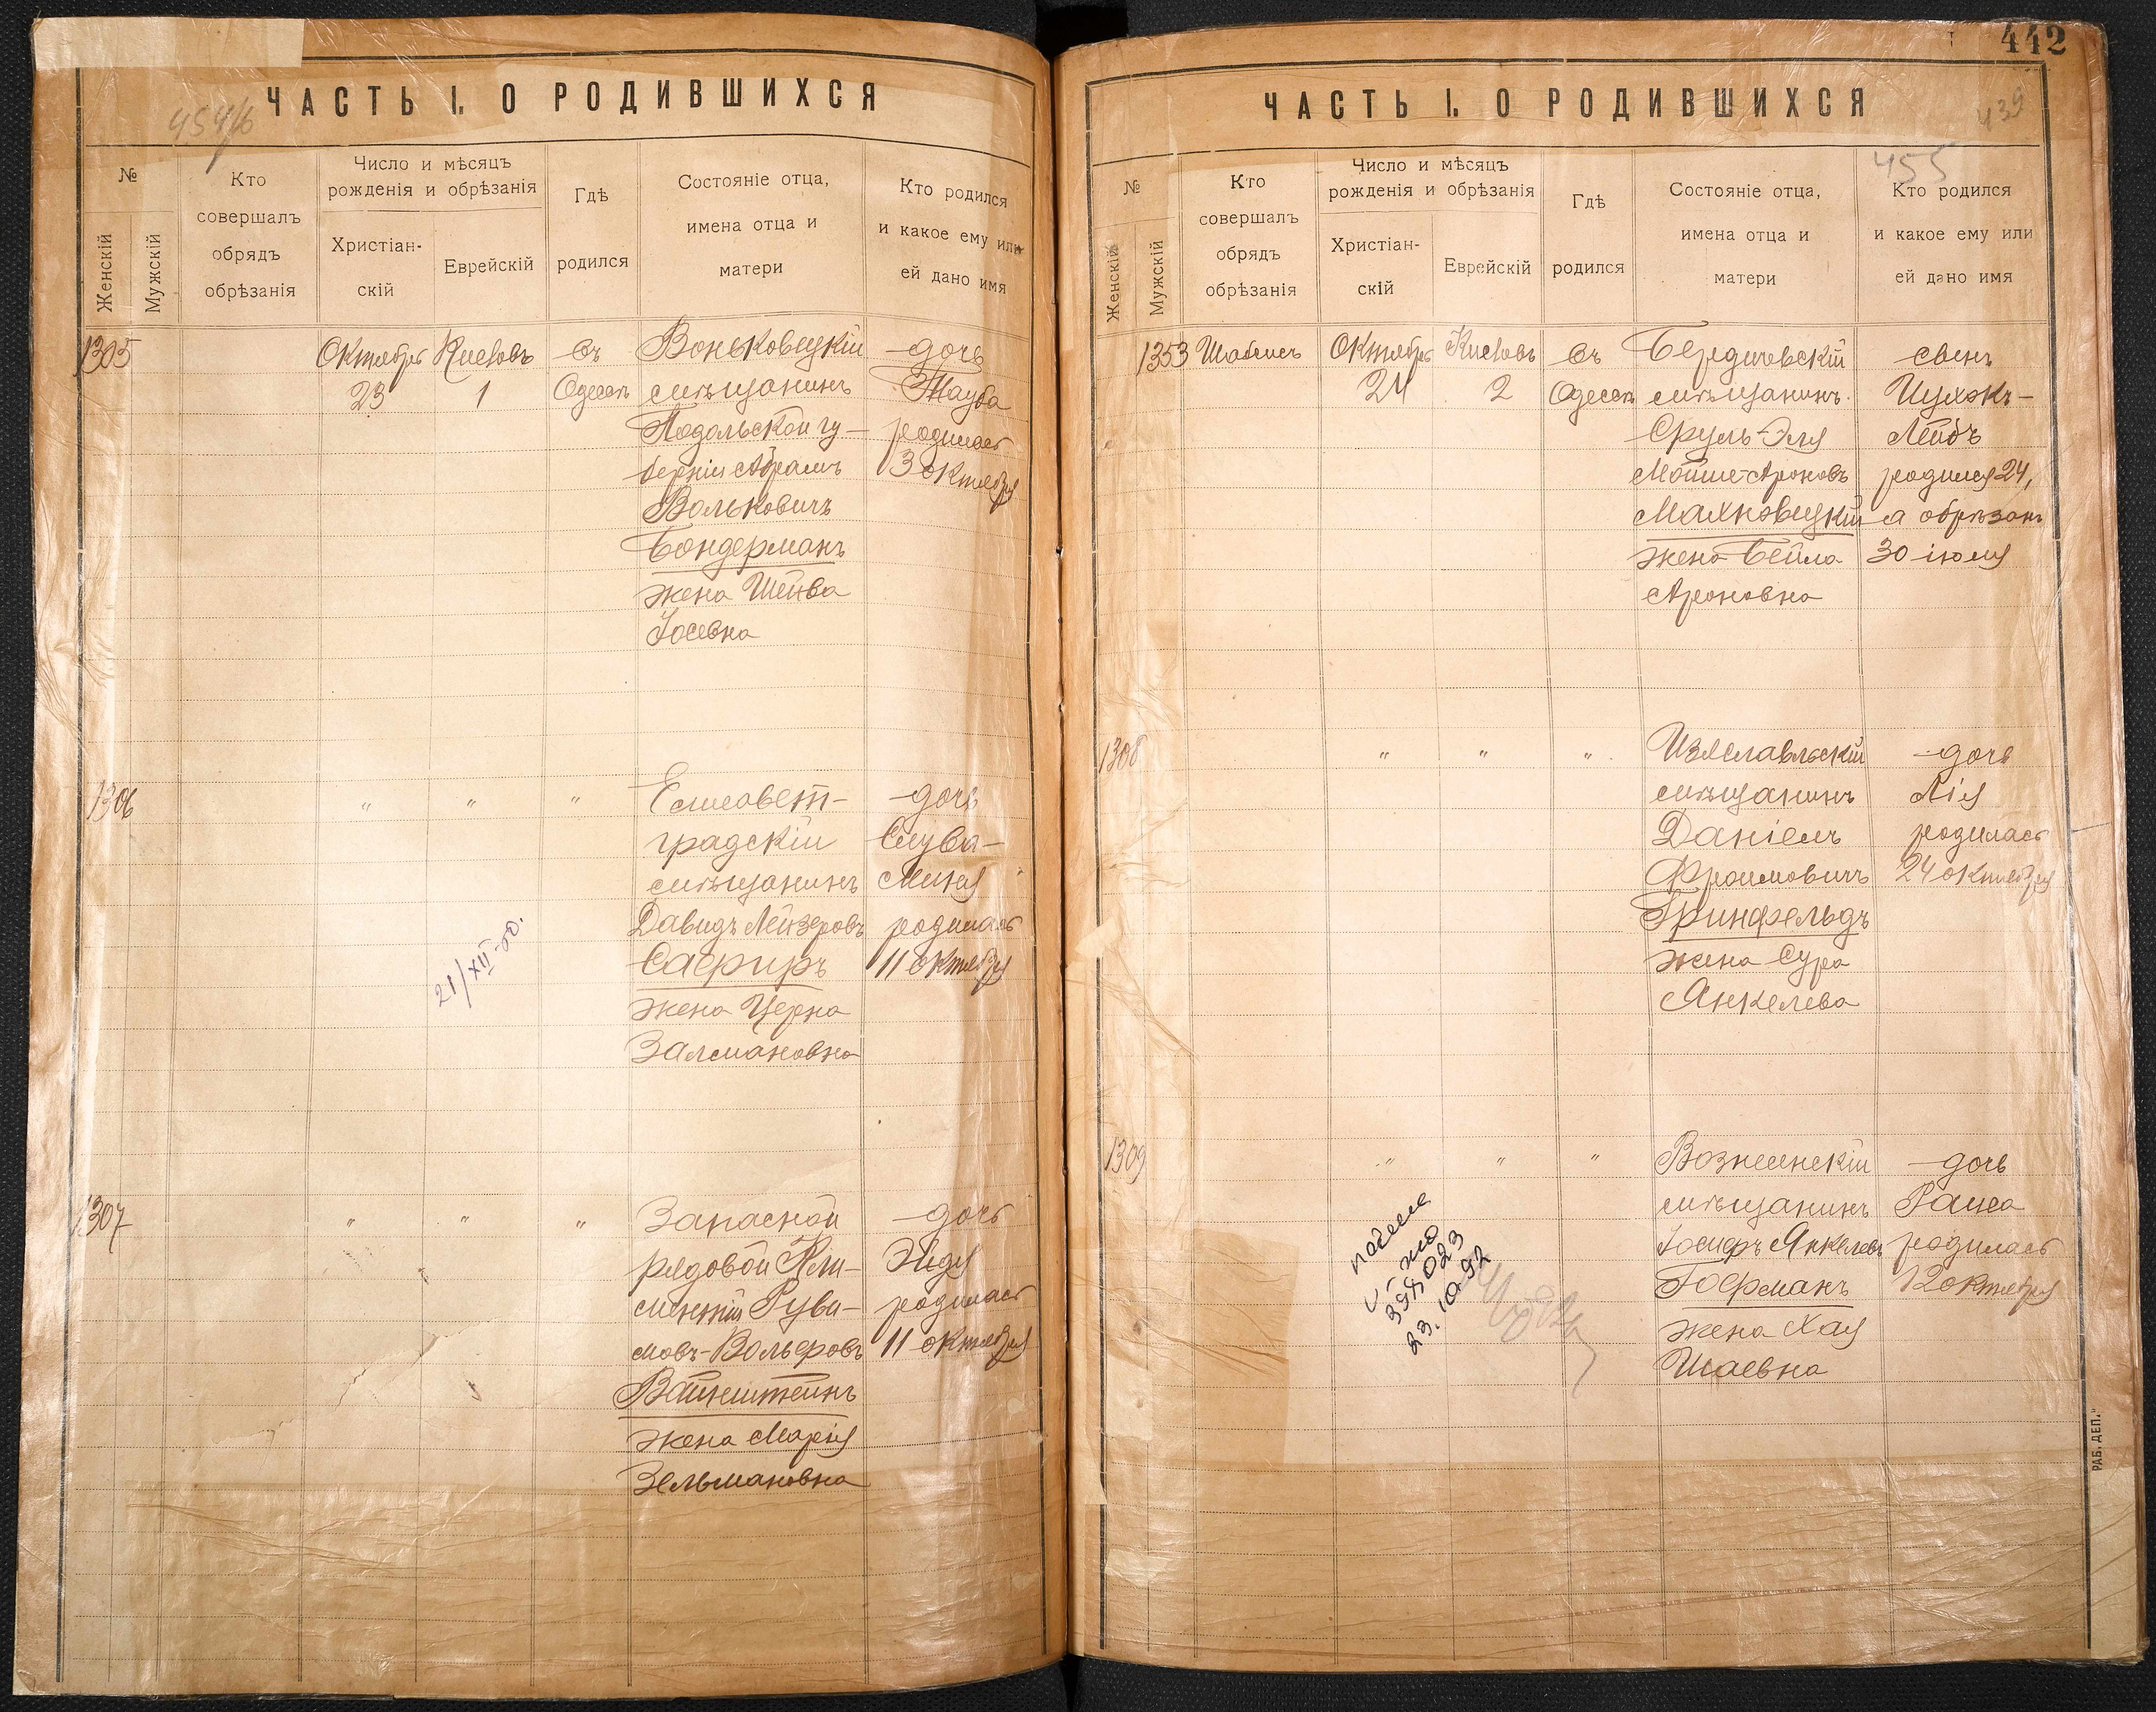 ЧАСТЬ I. О РОДИВШИХСЯ
454/б
№
Женскій
Мужскій
Кто
совершалъ
обрядъ
обрѣзанія
Число и мѣсяцъ
рожденія и обрѣзанія
Христіан-
скій
Еврейскій
Гдѣ
родился
Состояніе отца,
имена отца и
матери
Кто родился
и какое ему или
ей дано имя
1305
Октября Кислевъ въ Воньковецкій дочь
23 1 Одессѣ мѣщанинъ Тауба
Подольской гу- родилась
берніи Абрамъ 3 октября
Вольковичъ
Бондерманъ
жена Шейва
Іосевна
1306 " " " Елисавет- дочь
градскій Слува-
мѣщанинъ Миня
Давидъ Лейзеровъ родилась
Сафиръ 11 октября
жена Черна
Залмановна
21/XII-50.
1307 " " " Запасной дочь
рядовой Эйдя
Руви- родилась
мовъ-Вольфовъ 11 октября
Вайнштейнъ
жена Марія
Зельмановна
442
ЧАСТЬ I. О РОДИВШИХСЯ
439
455
№
Женскій
Мужскій
Кто
совершалъ
обрядъ
обрѣзанія
Число и мѣсяцъ
рожденія и обрѣзанія
Христіан-
скій
Еврейскій
Гдѣ
родился
Состояніе отца,
имена отца и
матери
Кто родился
и какое ему или
ей дано имя
1353 Октября Кислевъ въ Бердичевскій сынъ
24 2 Одессѣ мѣщанинъ Ицхокъ-
Сруль-Эля Лейбъ
Мойше-Ароновъ родился 24,
Махновецкій а обрѣзанъ
жена Бейла 30 іюля
Ароновна
1308 " " " Изяславльскій дочь
мѣщанинъ Лія
Даніель родилась
Фроимовичъ 24 октября
Гринфельдъ
жена Сура
Янкелева
1309 " " " Вознесенскій дочь
мѣщанинъ Раиса
Іосифъ Янкелевъ родилась
Гофманъ 12 октября
жена Хая
Шаевна
23.10.92
РАБ. ДЕП."